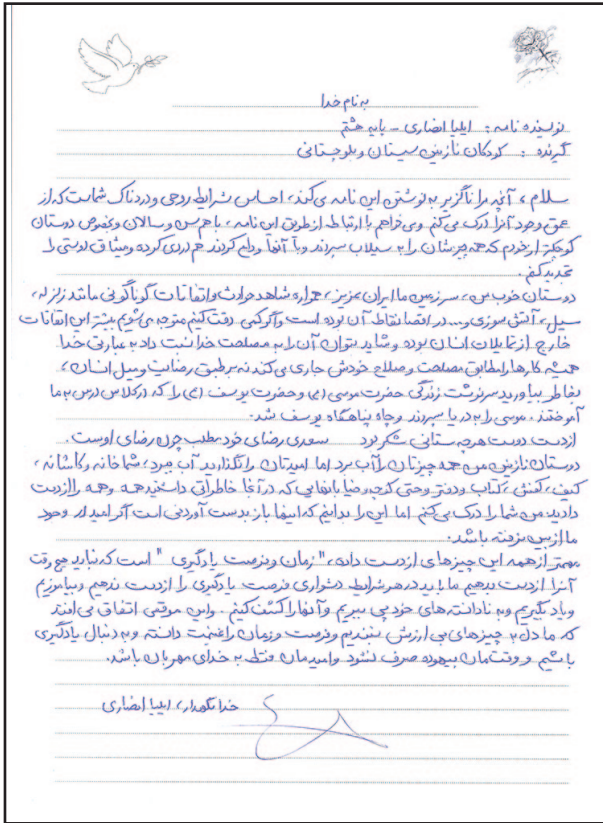 به نام خدا
نویسنده نامه: ایلیا انصاری - پایه هشتم
گیرنده: کودکان نازنین سیستان و بلوچستانی
سلام، آنچه مرا ناگزیر به نوشتن این نامه می‌کند، احساس شرایط روحی و دردناک شماست که از
عمق وجود آنرا درک می‌کنم و می‌خواهم با ارتباط از طریق این نامه، با هم سن و سالان و بخصوص دوستان
کوچکتر از خودم که همه چیزشان را به سیلاب سپردند و با آنها وداع کردند هم دردی کرده و میثاق دوستی را
تجدید کنم.
دوستان خوب من، سرزمین ما ایران عزیز، همواره شاهد حوادث و اتفاقات گوناگونی مانند زلزله،
سیل، آتش سوزی و... در اقصا نقاط آن بوده است و اگر کمی دقت کنیم متوجه می‌شویم بیشتر این اتفاقات
خارج از تمایلات انسان بوده و شاید بتوان آن را به مصلحت خدا نسبت داد به عبارتی خدا
همیشه کارها را مطابق مصلحت و صلاح خودش جاری می‌کند نه بر طبق رضایت و میل انسان،
بخاطر بیاورید سرنوشت زندگی حضرت موسی (ع) و حضرت یوسف (ع) را که در کلاس درس به ما
آموختند. موسی را به دریا سپردند و چاه پناهگاه یوسف شد.
از دست دوست هرچه ستانی شکر بود سعدی رضای خود مطلب چون رضای اوست.
دوستان نازنین من همه چیزتان را آب برد اما امیدتان را نگذارید آب ببرد، شما خانه و کاشانه،
کیف، کفش، کتاب و دفتر و حتی کوچه و خیابانهایی که در آنجا خاطراتی داشتید همه و همه را از دست
دادید من شما را درک می‌کنم اما این را بدانیم که اینها باز بدست آوردنی است اگر امید از وجود
ما از بین نرفته باشد.
مهمتر از همه این چیزهای از دست داده، "زمان و فرصت یادگیری" است که نباید هیچ وقت
آنرا از دست بدهیم ما باید در هر شرایط دشواری فرصت یادگیری را از دست ندهیم و بیاموزیم
و یاد بگیریم و به نادانسته های خود پی ببریم و آنها را کشف کنیم. و این موقعی اتفاق می‌افتد
که ما دل به چیزهای بی ارزش نبندیم و فرصت و زمان را غنیمت دانسته و به دنبال یادگیری
باشیم و وقتمان بیهوده صرف نشود و امیدمان فقط به خدای مهربان باشد.
خدانگهدار، ایلیا انصاری